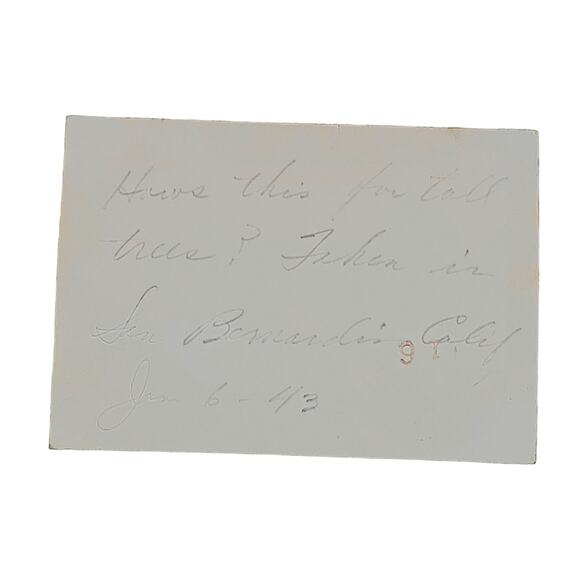 Hows this for tall
trees? Taken in
San Bernardino Calif
Jan 6-43
91.